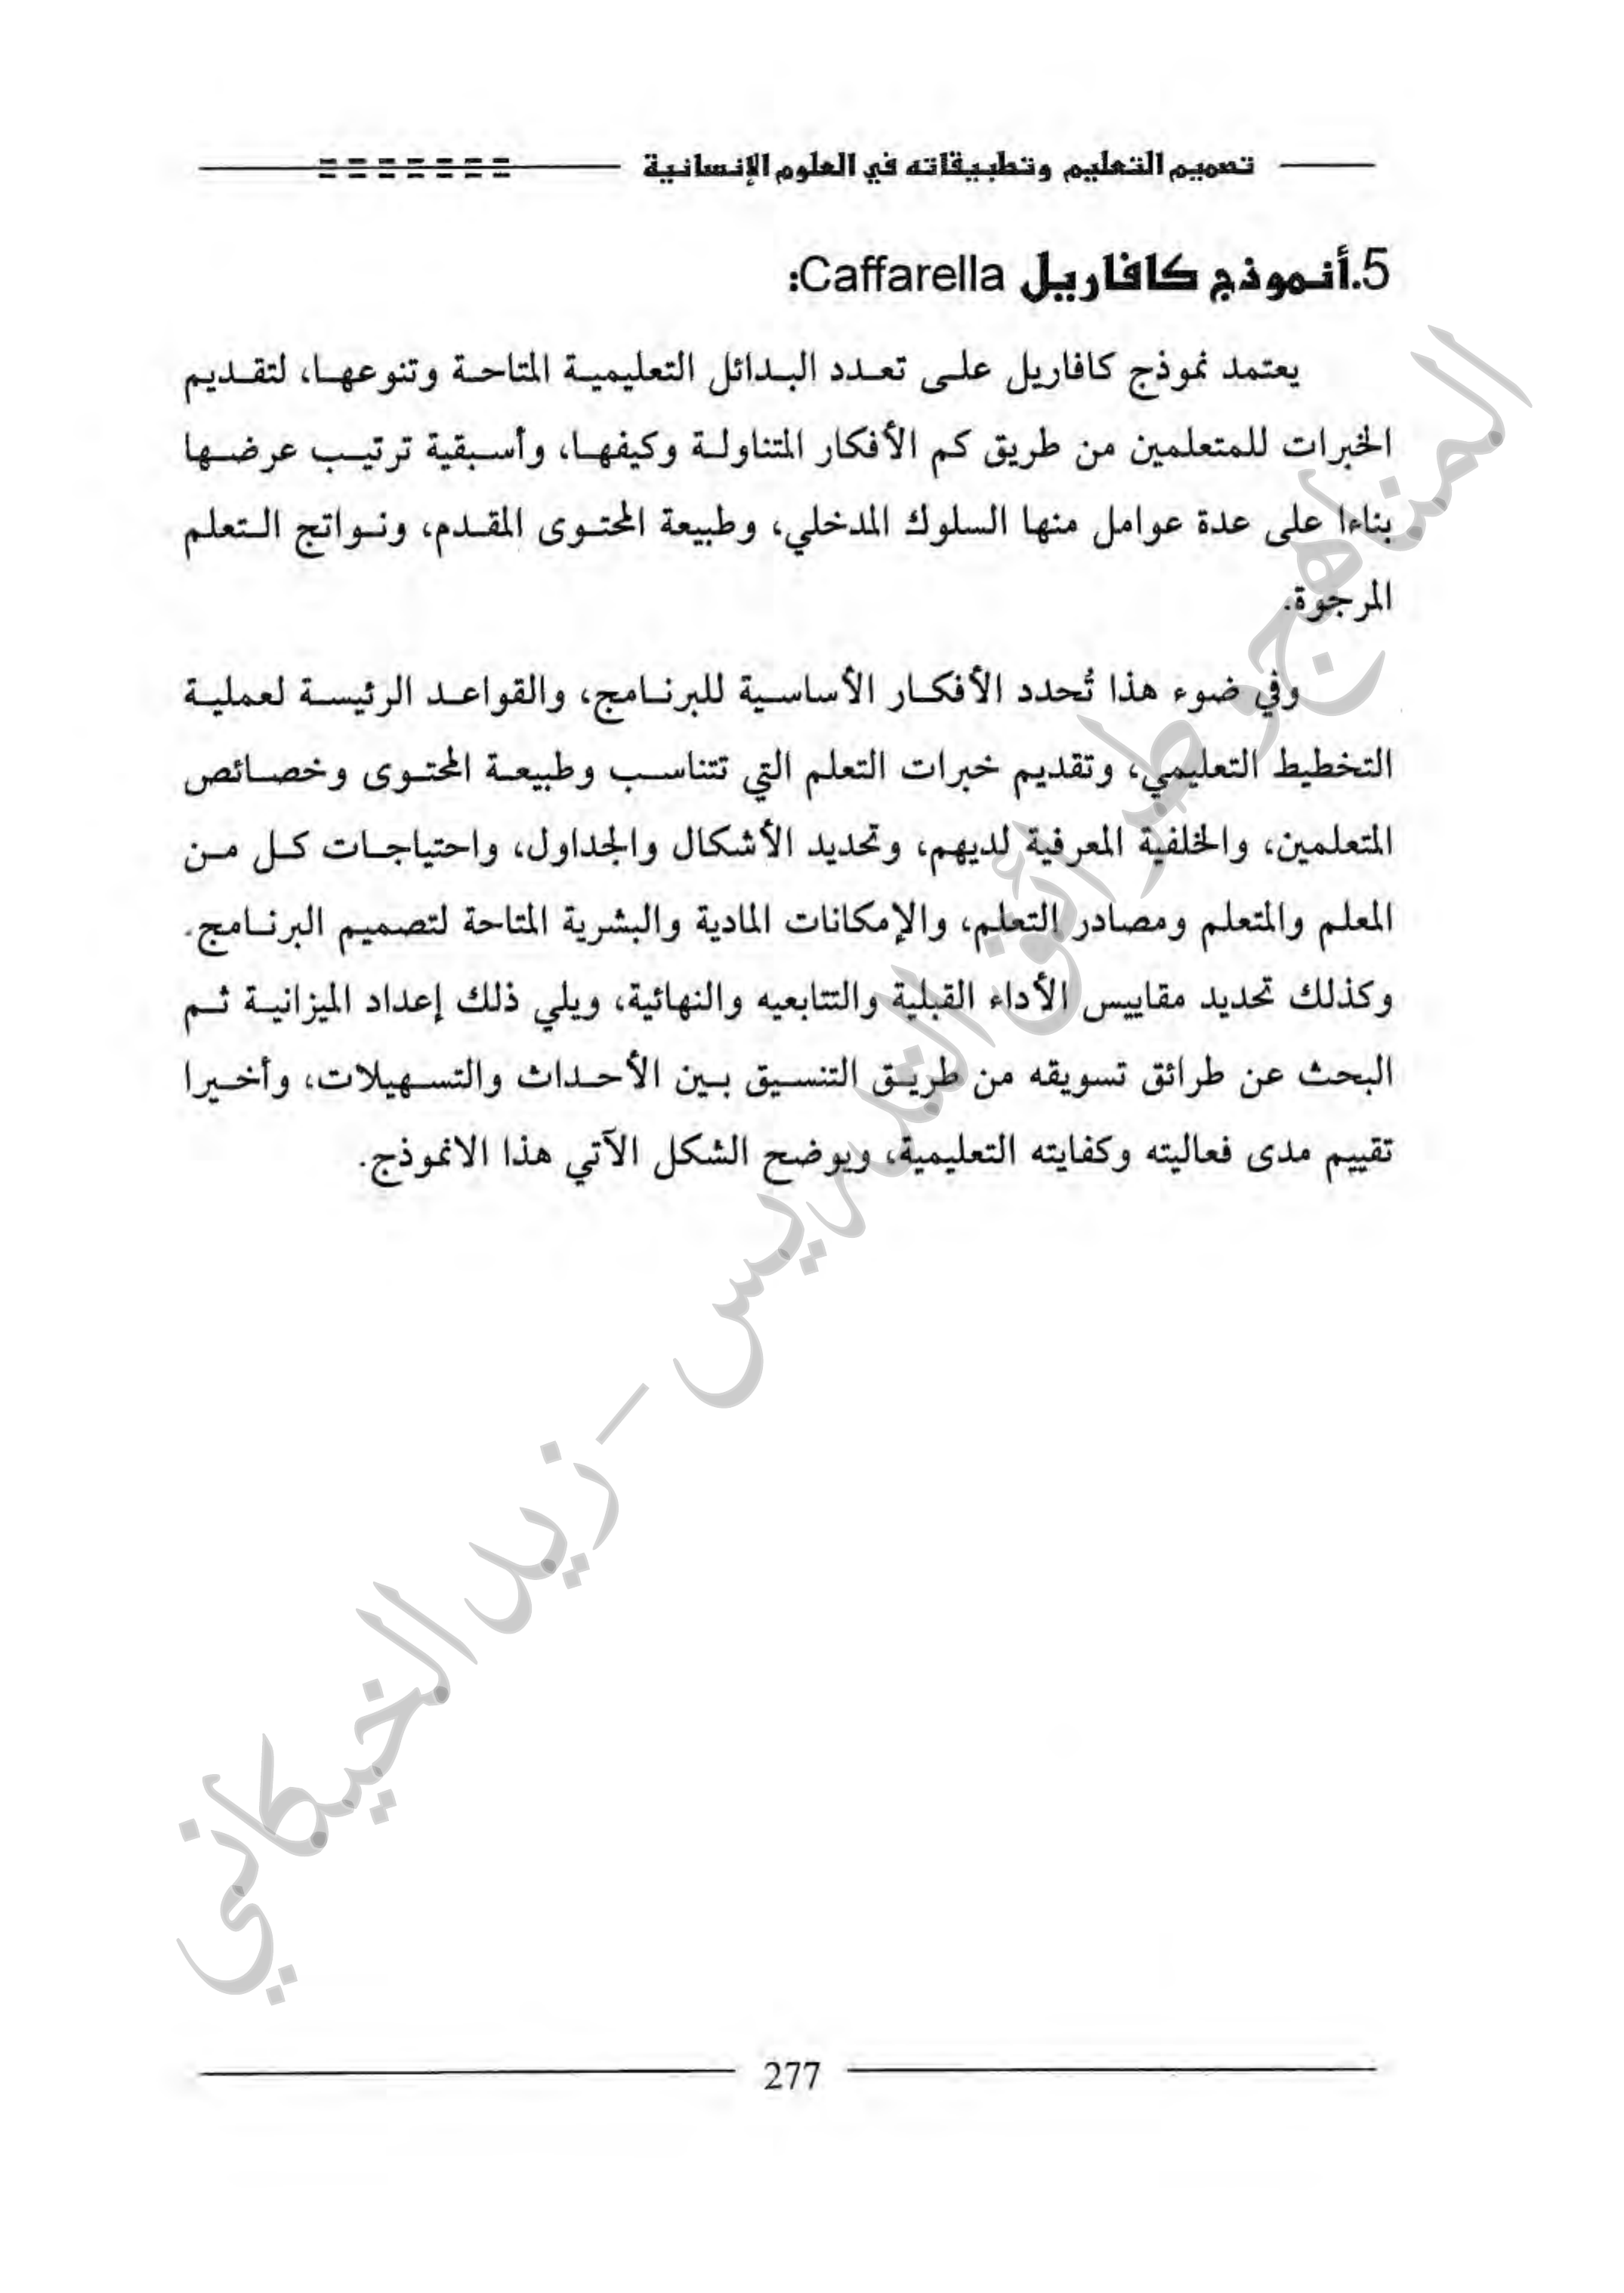 تصميم التعليم وتطبيقاته في العلوم الإنسانية
5.أنموذج كافاريل Caffarella:
يعتمد نموذج كافاريل على تعدد البدائل التعليمية المتاحة وتنوعها، لتقديم
الخبرات للمتعلمين من طريق كم الأفكار المتناولة وكيفها، وأسبقية ترتيب عرضها
بناءا على عدة عوامل منها السلوك المدخلي، وطبيعة المحتوى المقدم، ونواتج التعلم
المرجوة.
وفي ضوء هذا تُحدد الأفكار الأساسية للبرنامج، والقواعد الرئيسة لعملية
التخطيط التعليمي، وتقديم خبرات التعلم التي تتناسب وطبيعة المحتوى وخصائص
المتعلمين، والخلفية المعرفية لديهم، وتحديد الأشكال والجداول، واحتياجات كل من
المعلم والمتعلم ومصادر التعلم، والإمكانات المادية والبشرية المتاحة لتصميم البرنامج.
وكذلك تحديد مقاييس الأداء القبلية والتتابعيه والنهائية، ويلي ذلك إعداد الميزانية ثم
البحث عن طرائق تسويقه من طريق التنسيق بين الأحداث والتسهيلات، وأخيرا
تقييم مدى فعاليته وكفايته التعليمية، ويوضح الشكل الآتي هذا الانموذج.
المناهج وطرائق التدريس - زيد الخيكاني
277